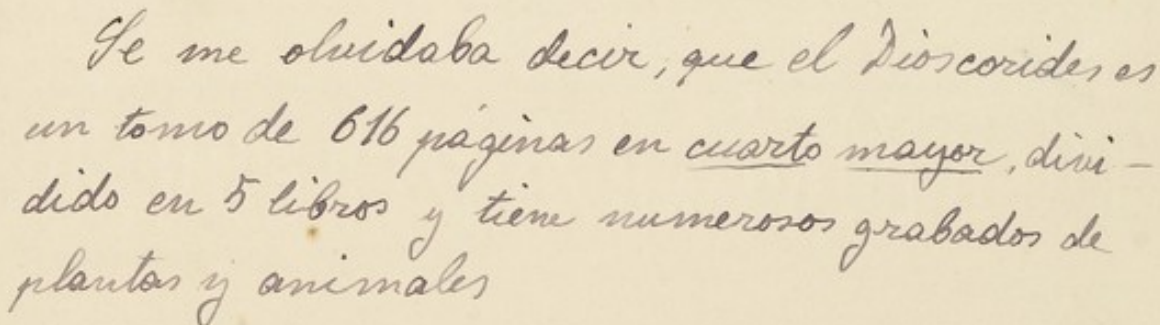 Se me olvidaba decir, que el Dioscorides es
un tomo de 616 páginas en cuarto mayor, divi-
dido en 5 libros y tiene numerosos grabados de
plantas y animales